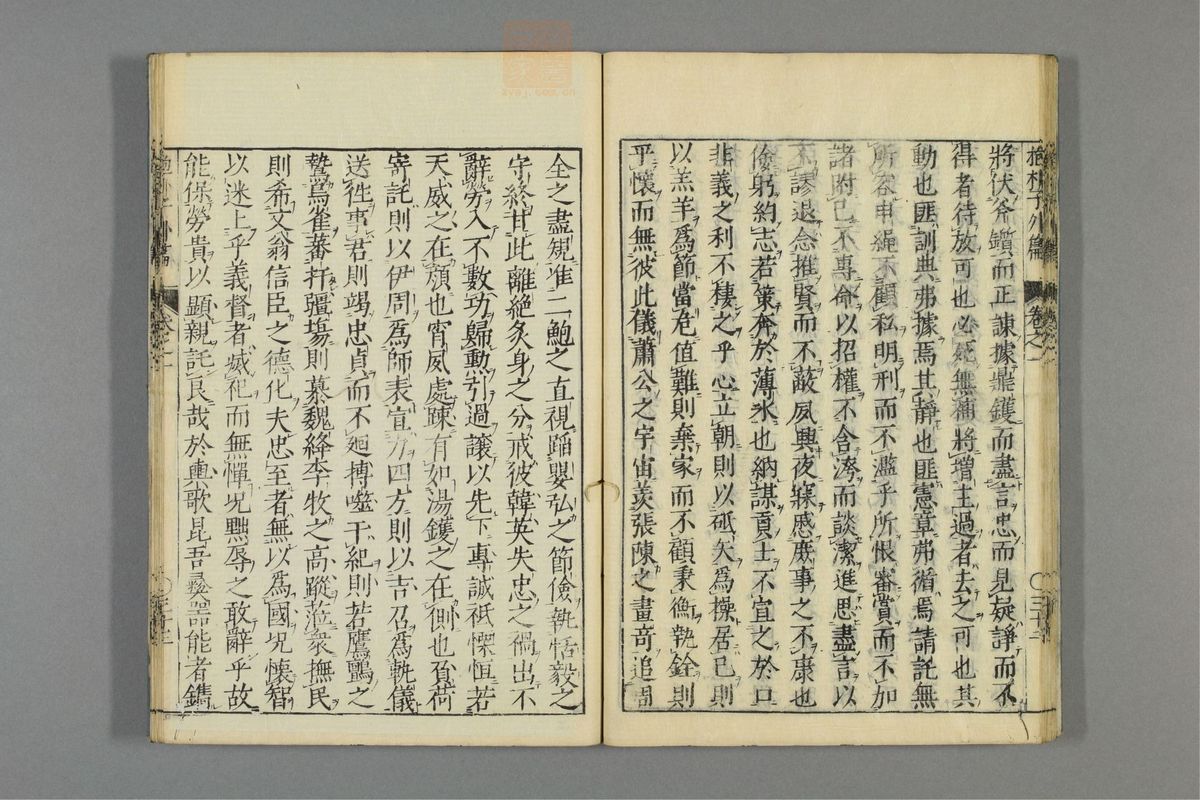 抱朴子外篇　卷之一
將伏斧鑕而正諫據鼎鑊而盡言忠而見疑諍而不
得者待放可也必死無補將增主過者去之可也其
動也匪訓典弗據焉其靜也匪憲章弗循焉請託無
所容申繩不顧私明刑而不濫乎所恨審賞而不加
諸附己不專命以招權不含洿而談潔進思盡言以
不謬退念推賢而不蔽夙興夜寐慼庶事之不康也
儉躬約志若策奔於薄氷也納謀貢士不宣之於口
非義之利不棲之乎心立朝則以砥矢爲操居己則
以羔羊爲節當危値難則棄家而不顧秉衡執銓則
平懷而無彼此儀蕭公之宇宙羨張陳之畫奇追周
全之盡規准二鮑之直視蹈嬰弘之節儉執恬毅之
守終甘此離絶炙身之分戒彼韓英失忠之禍出不
辭勞入不數功歸勳引過讓以先下專誠祗慄恒若
天威之在顏也宵夙處竦有如湯鑊之在側也負荷
寄託則以伊周爲師表宣力四方則以吉召爲軌儀
送往事君則竭忠貞而不廻搏噬干紀則若鷹鸇之
鷙鳥雀蕃扞疆埸則慕魏絳李牧之高蹤莅衆撫民
則希文翁信臣之德化夫忠至者無以爲國况懷智
以迷上乎義督者滅祀而無憚况黜辱之敢辭乎故
能保勞貴以顯親託良哉於輿歌昆吾彝器能者鐫